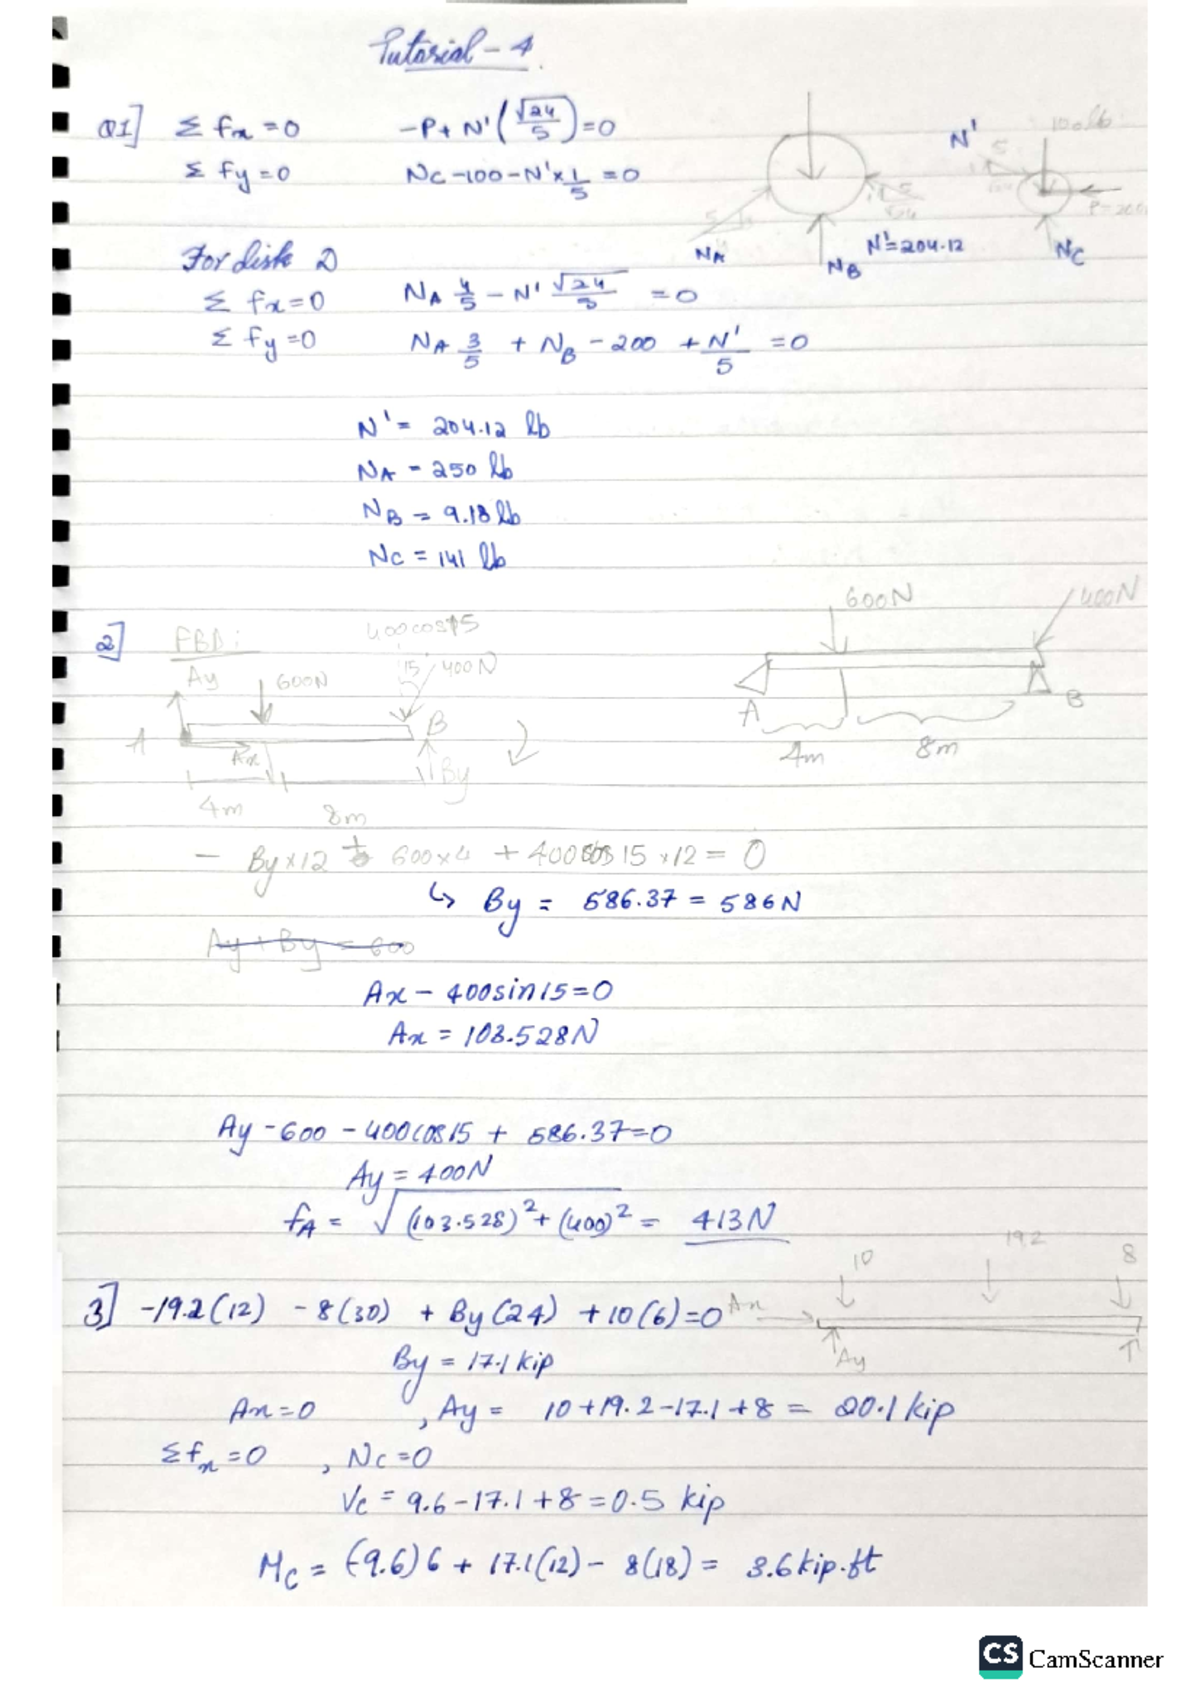 Tutorial - 4
Q1] Σ fx = 0   -P + N' (√24/5) = 0
Σ fy = 0   Nc - 100 - N' × 1/5 = 0
N'
100lb
5
5
NA
NB
N' = 204.12
NC
For disk D
Σ fx = 0   NA 4/5 - N' √24/5 = 0
Σ fy = 0   NA 3/5 + NB - 200 + N'/5 = 0
N' = 204.12 lb
NA = 250 lb
NB = 9.18 lb
NC = 141 lb
2] FBD:
400cos15
Ay
600N
15
400N
A
Ax
B
By
4m
8m
600N
400N
A
B
4m
8m
- By×12 + 600×4 + 400cos15 ×12 = 0
↳ By = 586.37 = 586N
Ay + By = 600
Ax - 400sin15 = 0
Ax = 103.528N
Ay - 600 - 400cos15 + 586.37 = 0
Ay = 400N
fA = √(103.528)² + (400)² = 413N
3] -19.2(12) - 8(30) + By(24) + 10(6) = 0
10
19.2
8
Ax
Ay
By = 17.1 kip
Ax = 0 , Ay = 10+19.2-17.1+8 = 20.1 kip
Σfx = 0 , Nc = 0
Vc = 9.6 - 17.1 + 8 = 0.5 kip
Mc = (-9.6)6 + 17.1(12) - 8(18) = 3.6 kip.ft
CS CamScanner